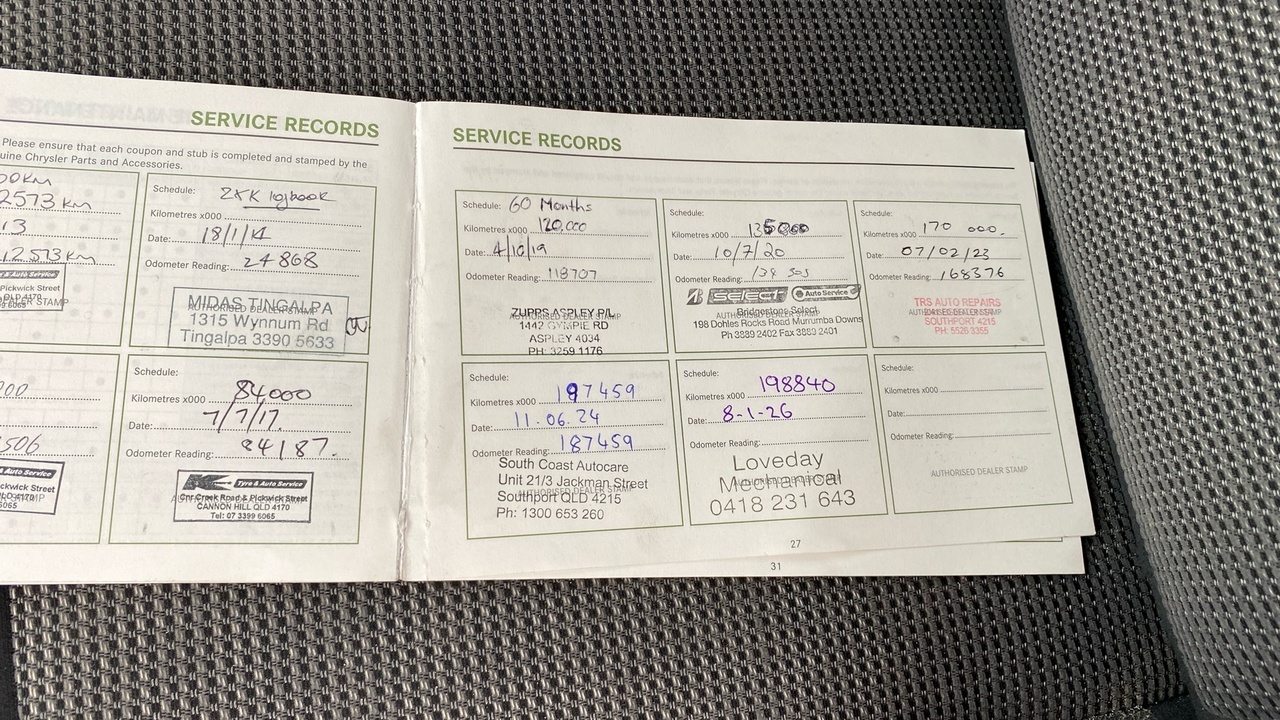 SERVICE RECORDS
Please ensure that each coupon and stub is completed and stamped by the
uine Chrysler Parts and Accessories.
00KM
2573 KM
13
12573KM
& Auto Service
Pickwick Street
QLD 4170
STAMP
Schedule: 25K logbook
Kilometres x000
Date: 18/1/14
Odometer Reading: 24868
AUTHORISED DEALER STAMP
MIDAS TINGALPA
1315 Wynnum Rd
Tingalpa 3390 5633
000
506
& Auto Service
ckwick Street
QLD 4170
6065
Schedule:
Kilometres x000 84000
Date: 7/7/17.
Odometer Reading: 84187.
K Tyre & Auto Service
Cnr Creek Road & Pickwick Street
CANNON HILL QLD 4170
Tel: 07 3399 6065
SERVICE RECORDS
Schedule: 60 Months
Kilometres x000 120,000
Date: 4/10/19
Odometer Reading: 118707
AUTHORISED DEALER STAMP
ZUPPS ASPLEY P/L
1442 GYMPIE RD
ASPLEY 4034
PH: 3259 1176
Schedule:
Kilometres x000 135000
Date: 10/7/20
Odometer Reading:
SELECT Auto Service
Bridgestone Select
AUTHORISED DEALER STAMP
198 Dohles Rocks Road Murrumba Downs
Ph 3889 2402 Fax 3883 2401
Schedule:
Kilometres x000 170 000.
Date: 07/02/23
Odometer Reading: 168376
TRS AUTO REPAIRS
AUTHORISED DEALER STAMP
SOUTHPORT 4215
PH: 5526 3355
Schedule:
Kilometres x000 187459
Date: 11.06.24
Odometer Reading: 187459
South Coast Autocare
Unit 21/3 Jackman Street
AUTHORISED DEALER STAMP
Southport QLD 4215
Ph: 1300 653 260
Schedule:
Kilometres x000 198840
Date: 8-1-26
Odometer Reading:
Loveday
AUTHORISED DEALER STAMP
Mechanical
0418 231 643
Schedule:
Kilometres x000
Date:
Odometer Reading:
AUTHORISED DEALER STAMP
27
31